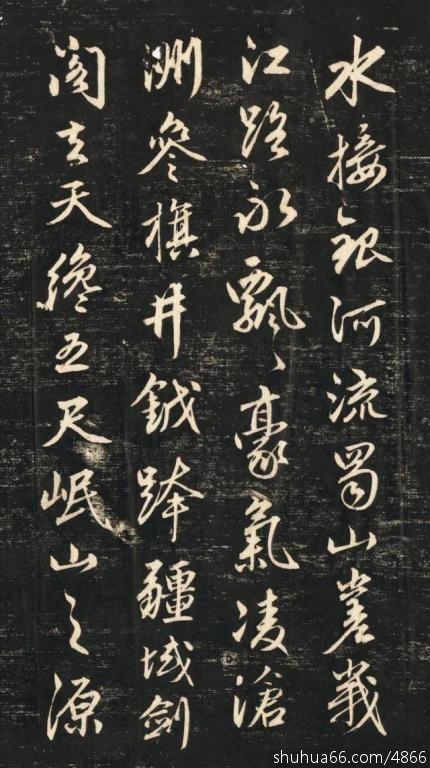 水接銀河流蜀山嵳峩
江路永飄〻豪氣凌滄
洲參旗井鉞跨疆域劍
閣去天纔五尺岷山之源
shuhua66.com/4866